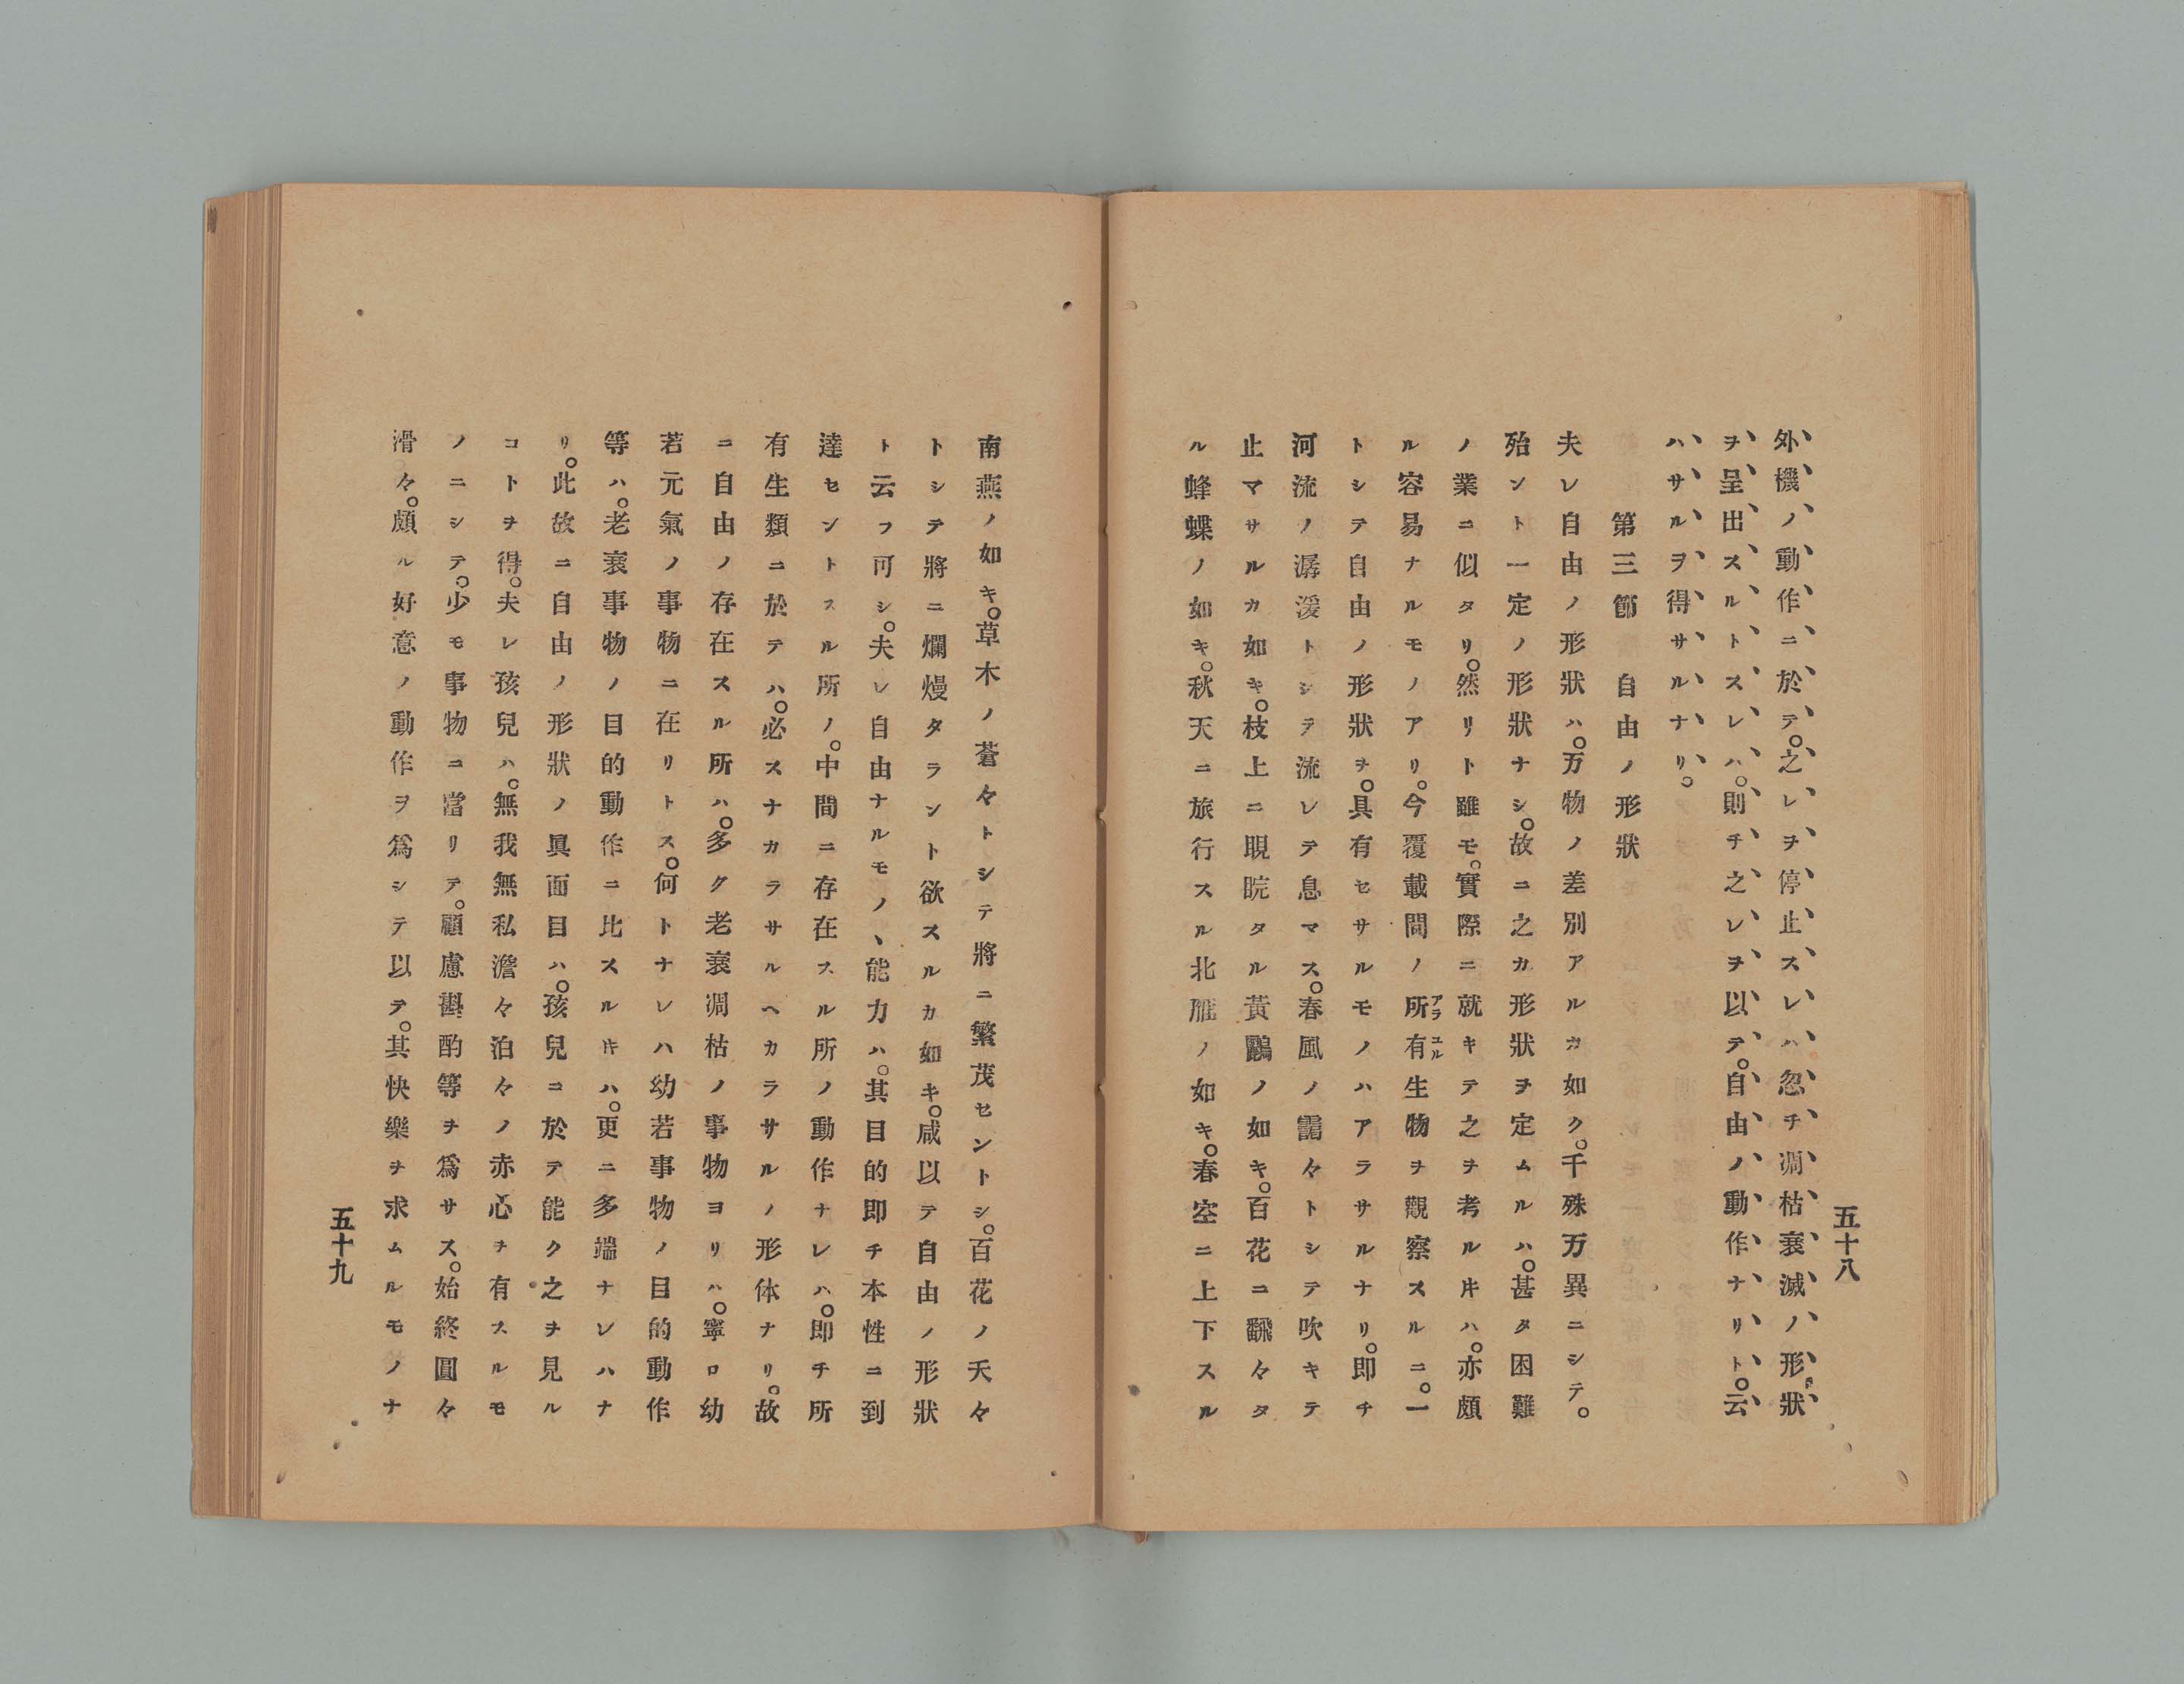 外機ノ動作ニ於テ。之レヲ停止スレハ忽チ凋枯衰滅ノ形狀
ヲ呈出スルトスレハ。則チ之レヲ以テ。自由ノ動作ナリト。云
ハサルヲ得サルナリ。
第三節　自由ノ形狀
夫レ自由ノ形狀ハ。万物ノ差別アルカ如ク。千殊万異ニシテ。
殆ント一定ノ形狀ナシ。故ニ之カ形狀ヲ定ムルハ。甚タ困難
ノ業ニ似タリ。然リト雖モ。實際ニ就キテ之ヲ考ルㇻハ。亦頗
ル容易ナルモノアリ。今覆載間ノ所有生物ヲ觀察スルニ。一
アラユル
トシテ自由ノ形狀ヲ。具有セサルモノハアラサルナリ。即チ
河流ノ潺湲トシテ流レテ息マス。春風ノ靄々トシテ吹キテ
止マサルカ如キ。枝上ニ睍睆タル黃鸝ノ如キ。百花ニ翩々タ
ル蜂蝶ノ如キ。秋天ニ旅行スル北雁ノ如キ。春空ニ上下スル
五十八
南燕ノ如キ。草木ノ蒼々トシテ將ニ繁茂セントシ。百花ノ夭々
トシテ將ニ爛熳タラント欲スルカ如キ。咸以テ自由ノ形狀
ト云フ可シ。夫レ自由ナルモノヽ能力ハ。其目的即チ本性ニ到
達セントスル所ノ。中間ニ存在スル所ノ動作ナレハ。即チ所
有生類ニ於テハ。必スナカラサルヘカラサルノ形体ナリ。故
ニ自由ノ存在スル所ハ。多ク老衰凋枯ノ事物ヨリハ。寧ロ幼
若元氣ノ事物ニ在リトス。何トナレハ幼若事物ノ目的動作
等ハ。老衰事物ノ目的動作ニ比スルㇻハ。更ニ多端ナレハナ
リ。此故ニ自由ノ形狀ノ眞面目ハ。孩兒ニ於テ能ク之ヲ見ル
コトヲ得。夫レ孩兒ハ。無我無私澹々泊々ノ赤心ヲ有スルモ
ノニシテ。少モ事物ニ當リテ。顧慮斟酌等ヲ爲サス。始終圓々
滑々。頗ル好意ノ動作ヲ爲シテ以テ。其快樂ヲ求ムルモノナ
五十九